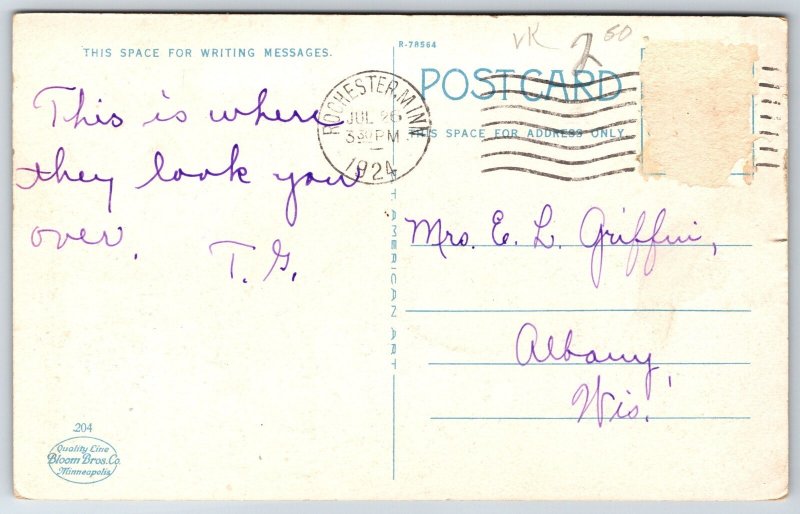 THIS SPACE FOR WRITING MESSAGES.
This is where
they look you
over.
T. G.
204
Quality Line
Bloom Bros. Co.
Minneapolis
ROCHESTER, MINN.
JUL 26
3 30 PM
1924
R-78564
VK
2 50
POST CARD
THIS SPACE FOR ADDRESS ONLY.
AMERICAN ART
Mrs. E. L. Griffin,
Albany,
Wis.